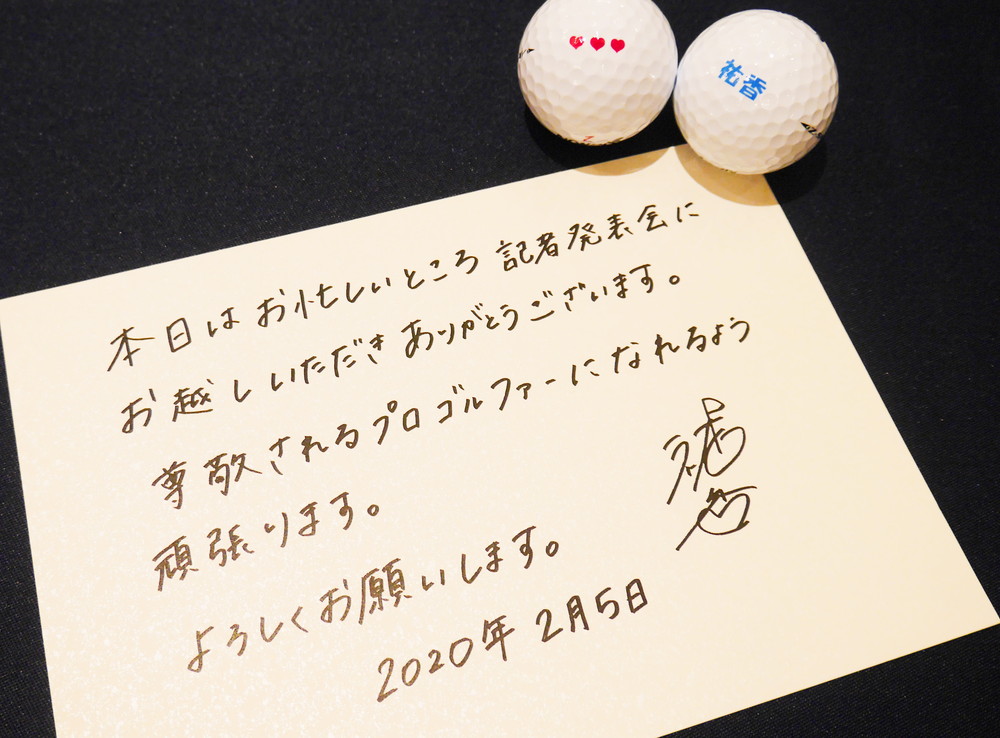 祐香
本日はお忙しいところ 記者発表会に
お越しいただきありがとうございます。
尊敬されるプロゴルファーになれるよう
頑張ります。
よろしくお願いします。
2020年 2月5日